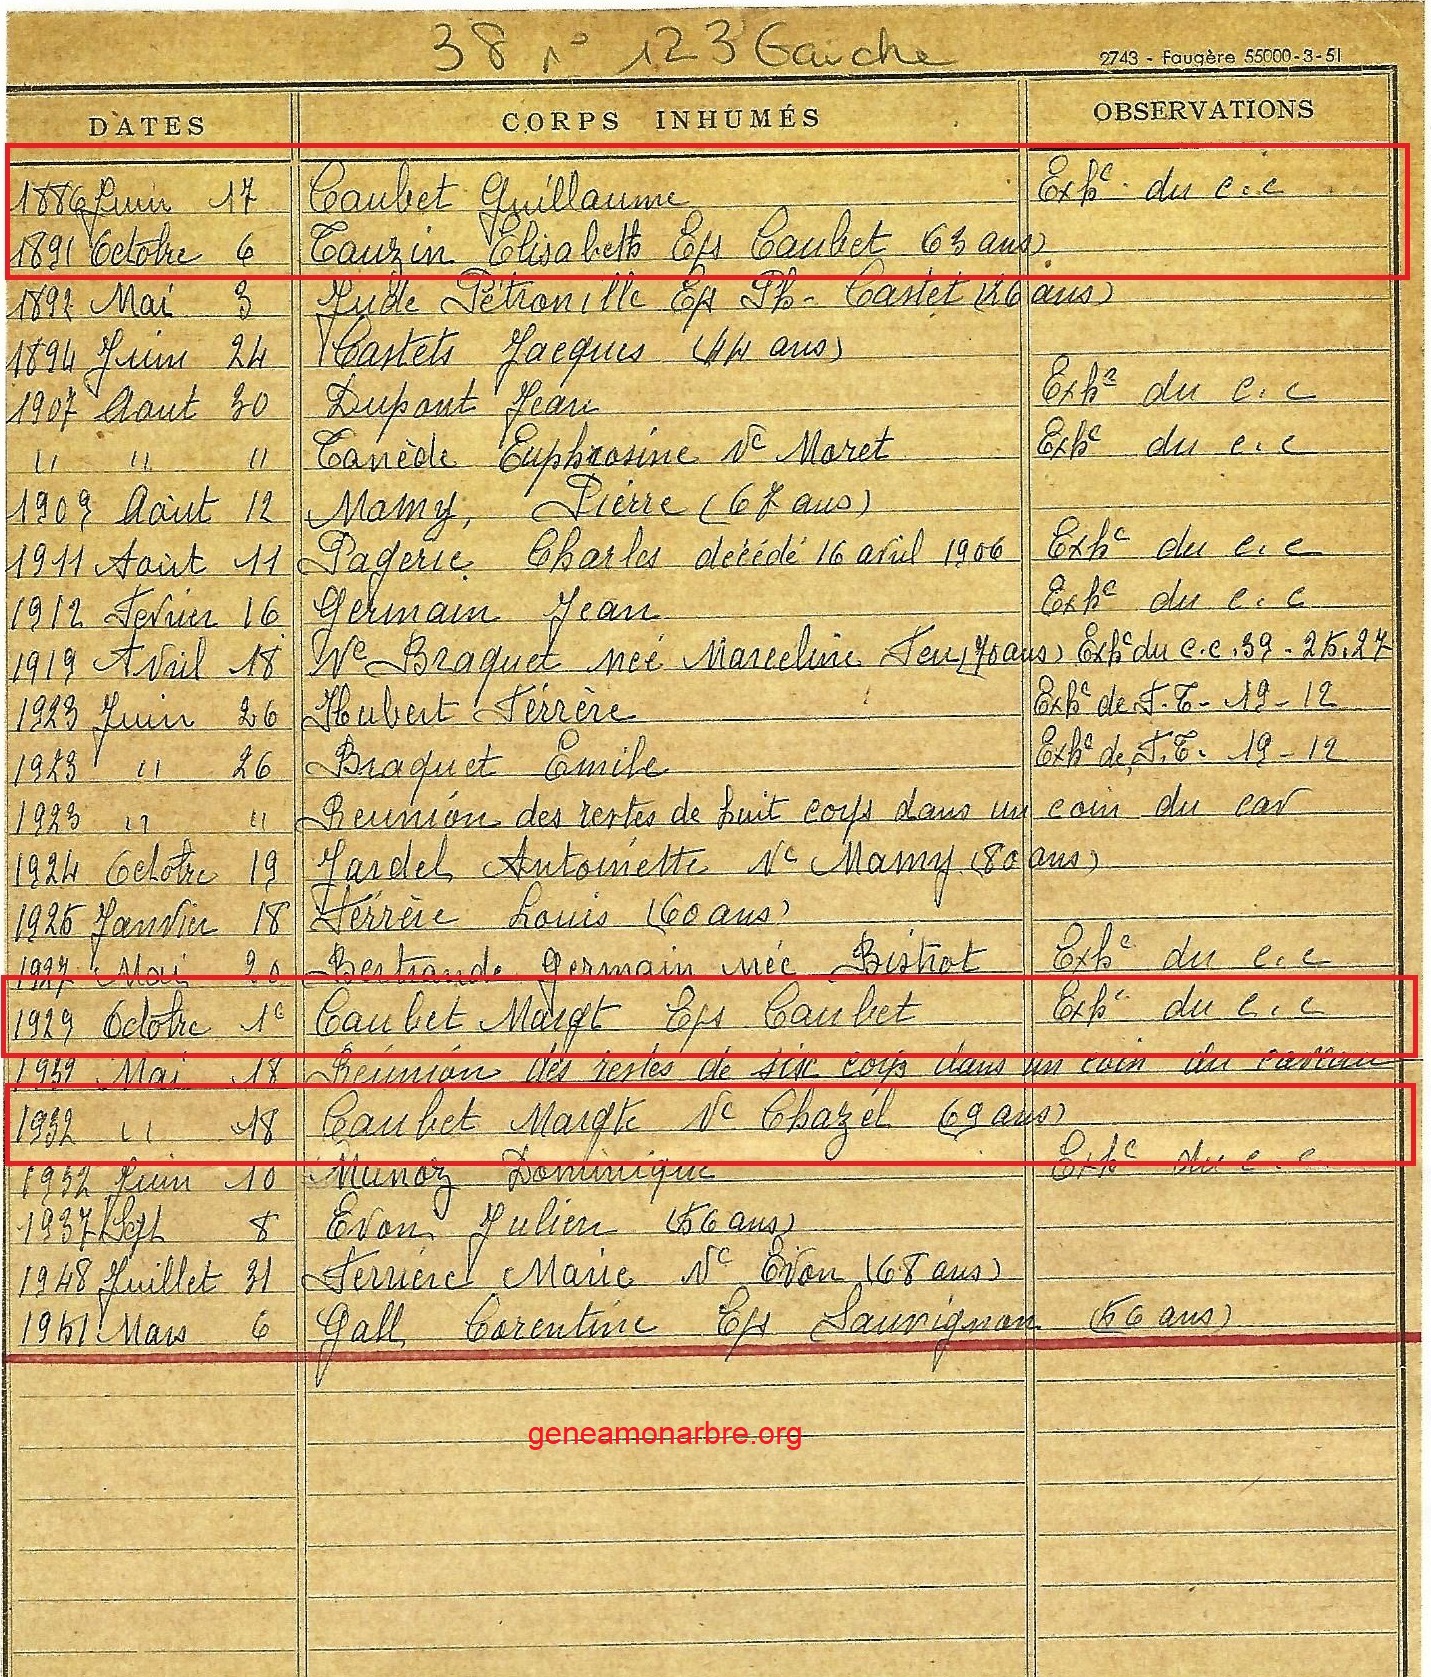 38 n° 123 Gauche
2743 - Faugère 55000-3-51
DATES CORPS INHUMÉS OBSERVATIONS
1886 Juin 17 Caubet Guillaume Exhc. du c.c
1891 Octobre 6 Tauzin Elisabeth Eps Caubet (63 ans)
1892 Mai 3 Jude Pétronille Eps Ph- Castet ( ans)
1894 Juin 24 Castets Jacques (44 ans)
1907 Aout 30 Dupont Jean Exhc du c.c
" " " Tanède Euphrosine Vc Moret Exhc du c.c
1909 Août 12 Mamy, Pierre (67 ans)
1911 Août 11 Pagerie Charles décédé 16 avril 1906 Exhc du c.c
1912 Fevrier 16 Germain Jean Exhc du c.c
1919 Avril 18 Vc Braquet née Marceline Feu (70 ans) Exhc du c.c. 39 - 25.27
1923 Juin 26 Hubert Férrère Exhc de T.C- 19 - 12
1923 " 26 Braquet Emile Exhc de T.C- 19 - 12
1923 " " Reunion des restes de huit corps dans un coin du cav
1924 Octobre 19 Jardel Antoinette Vc Mamy (80 ans)
1925 Janvier 18 Férrère Louis (60 ans)
1927 Mai 20 Bertrande Germain née Bistrot Exhc du c.c
1929 Octobre 1c Caubet Margt Eps Caubet Exhc du c.c
Mai 18 Réunion des restes de six corps dans un coin du caveau
1932 " 18 Caubet Margte Vc Chazel (69 ans)
1932 Juin 10 Munoz Dominique Exhc du c.c
1937 Sept 8 Evon Julien (56 ans)
1948 Juillet 31 Ferrière Marie Vc Evon (68 ans)
1951 Mars 6 Gall Corentine Eps Sauvignon (56 ans)
geneamonarbre.org